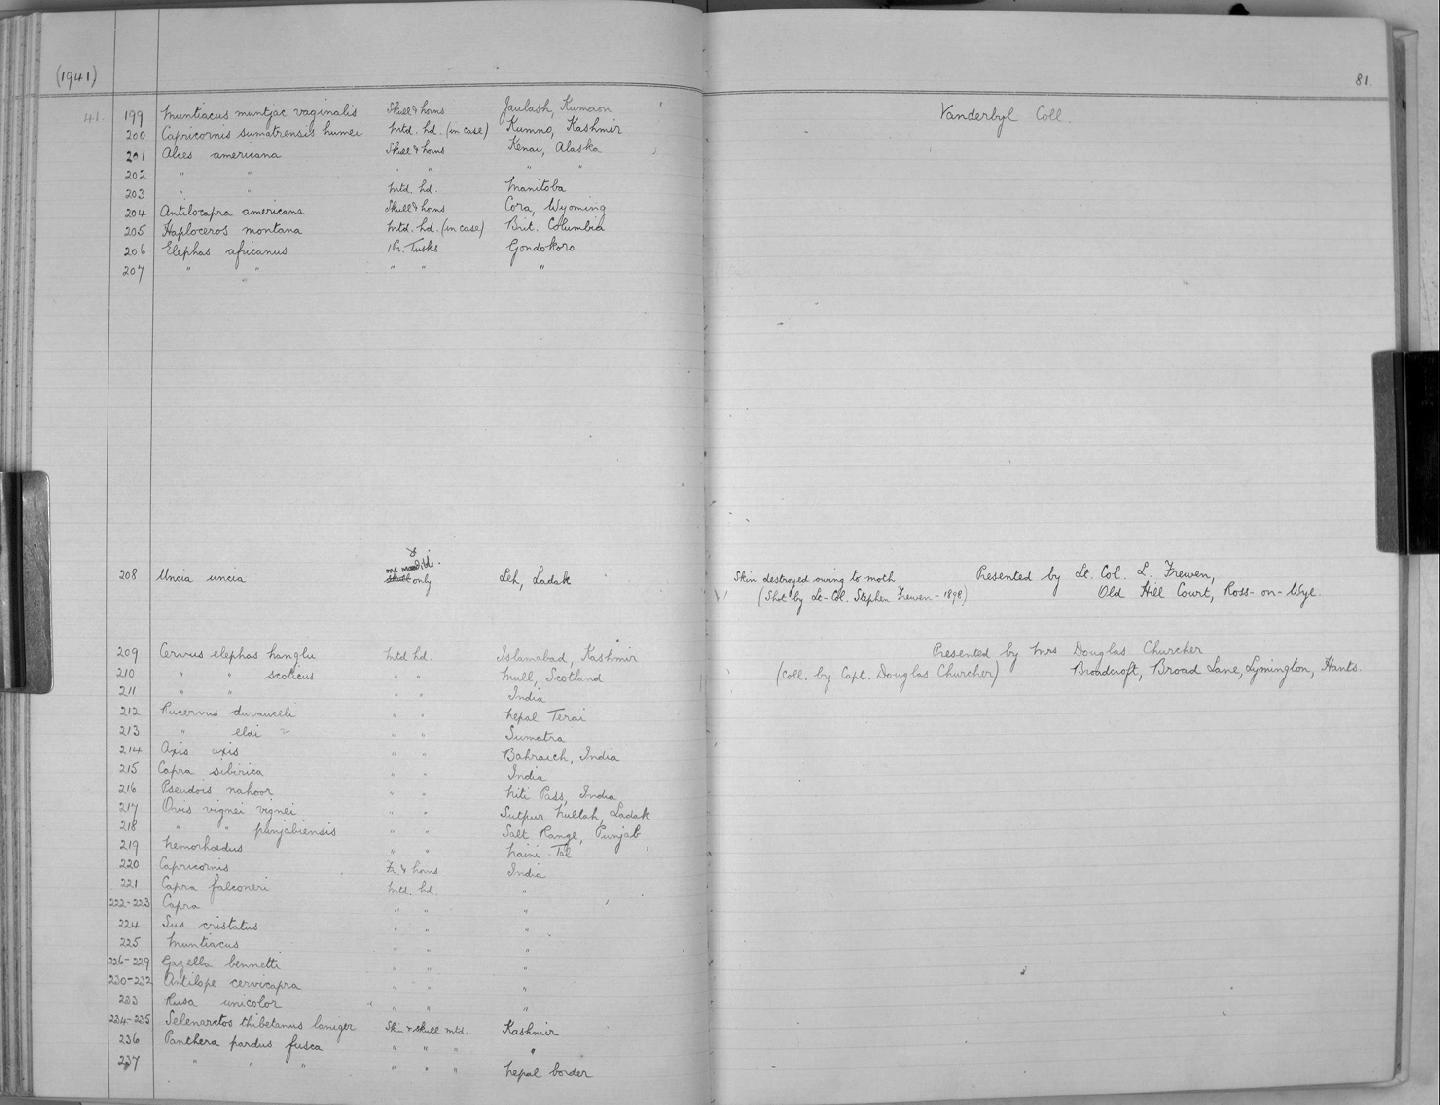 (1941)
81.
41. 199 Muntiacus muntjac vaginalis Skull & horns Jaulash, Kumaon Vanderbyl Coll.
200 Capricornis sumatrensis humei Mtd. hd. (in case) Kumno, Kashmir
201 Alces americana Skull & horns Kenai, Alaska
202 " " " " " "
203 " " Mtd. hd. Manitoba
204 Antilocapra americana Skull & horns Cora, Wyoming
205 Haploceros montana Mtd. hd. (in case) Brit. Columbia
206 Elephas africanus Pr. Tusks Gondokoro
207 " " " " "
208 Uncia uncia & mandib. only Leh, Ladak Skin destroyed owing to moth Presented by Lt. Col. L. Frewen,
(Shot by Lt-Col. Stephen Frewen - 1898) Old Hill Court, Ross-on-Wye.
209 Cervus elephas hanglu Mtd hd. Islamabad, Kashmir Presented by Mrs Douglas Churcher
210 " " scoticus " " Mull, Scotland (Coll. by Capt. Douglas Churcher) Broadcroft, Broad Lane, Lymington, Hants.
211 " " " " India
212 Rucervus duvauceli " " Nepal Terai
213 " eldi " " Sumatra
214 Axis axis " " Bahraich, India
215 Capra sibirica " " India
216 Pseudois nahoor " " Niti Pass, India
217 Ovis vignei vignei " " Sutpur Nullah, Ladak
218 " " punjabiensis " " Salt Range, Punjab
219 Nemorhaedus " " Naini-Tal
220 Capricornis Fr. & horns India
221 Capra falconeri Mtd. hd. "
222-223 Capra " " "
224 Sus cristatus " " "
225 Muntiacus " " "
226-229 Gazella bennetti " " "
230-232 Antilope cervicapra " " "
233 Rusa unicolor " " "
234-235 Selenarctos thibetanus laniger Skin & skull mtd. Kashmir
236 Panthera pardus fusca " " " "
237 " " " " " " Nepal border